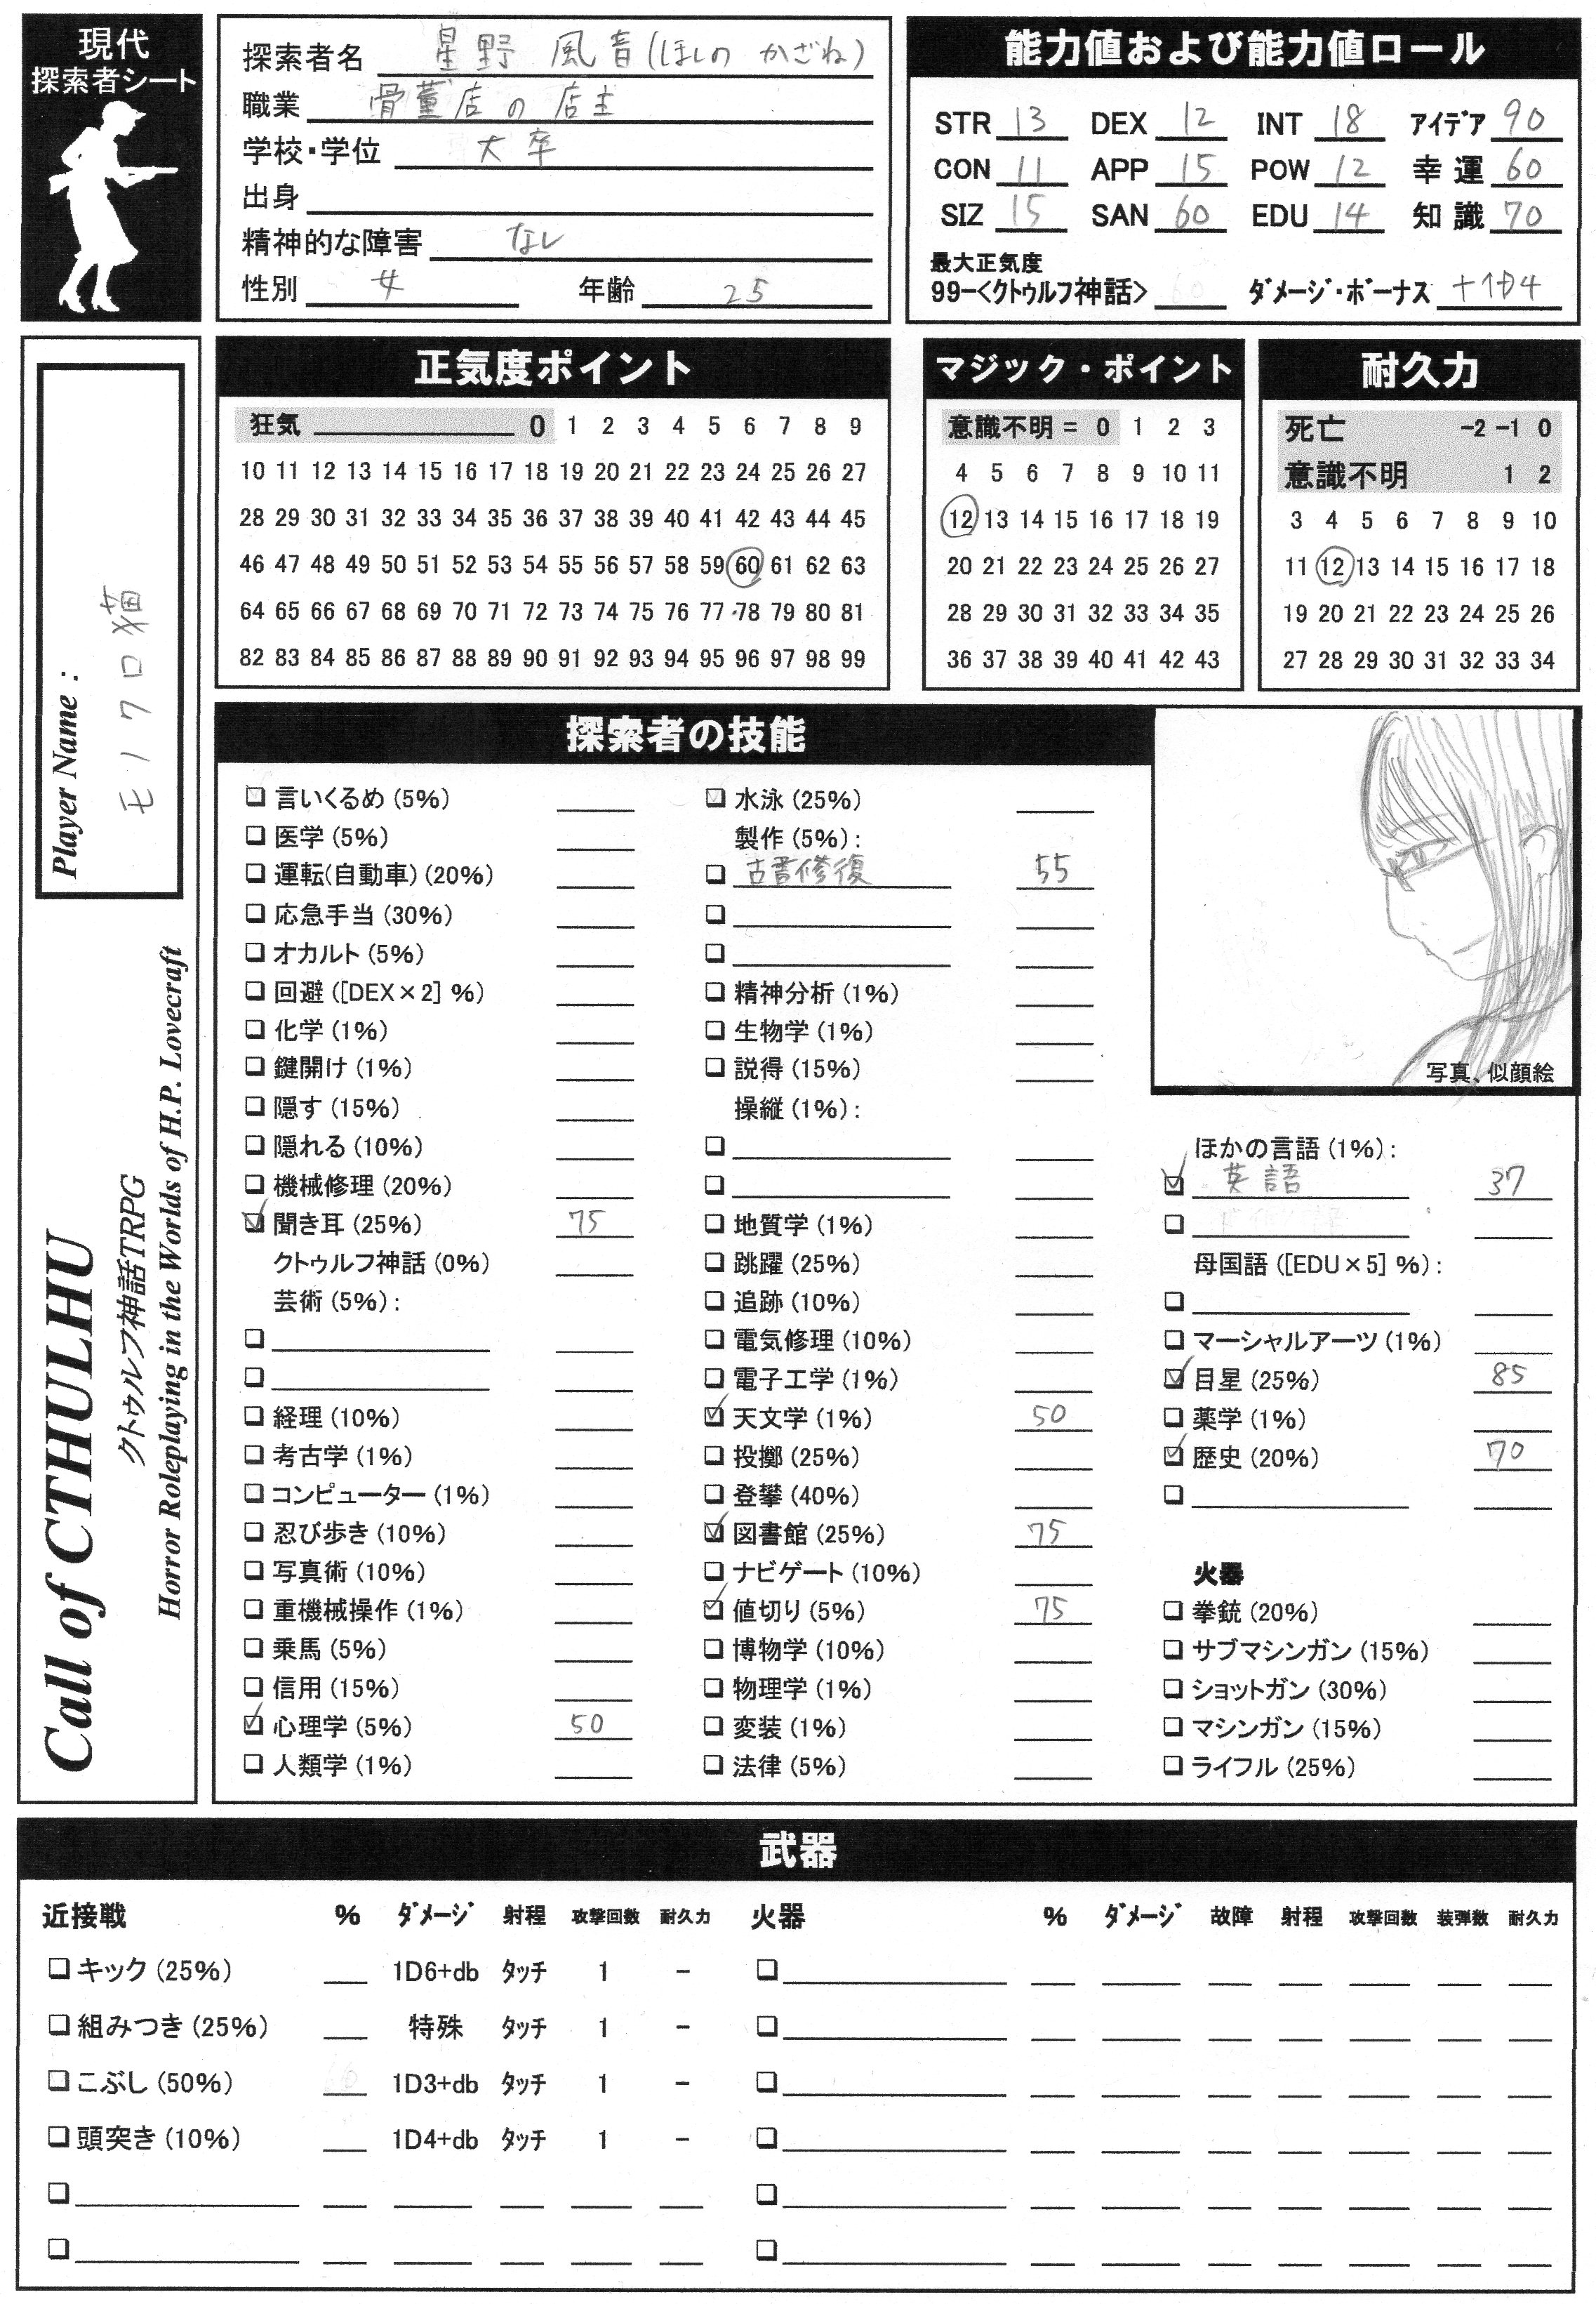 現代
探索者シート
探索者名 星野 風音(ほしの かざね)
職業 骨董店の店主
学校・学位 大卒
出身
精神的な障害 なし
性別 女 年齢 25
能力値および能力値ロール
STR 13 DEX 12 INT 18 アイデア 90
CON 11 APP 15 POW 12 幸運 60
SIZ 15 SAN 60 EDU 14 知識 70
最大正気度
99-<クトゥルフ神話> ダメージ・ボーナス +1D4
Player Name :
モノクロ猫
Call of CTHULHU
クトゥルフ神話TRPG
Horror Roleplaying in the Worlds of H.P. Lovecraft
正気度ポイント
狂気 0 1 2 3 4 5 6 7 8 9
10 11 12 13 14 15 16 17 18 19 20 21 22 23 24 25 26 27
28 29 30 31 32 33 34 35 36 37 38 39 40 41 42 43 44 45
46 47 48 49 50 51 52 53 54 55 56 57 58 59 60 61 62 63
64 65 66 67 68 69 70 71 72 73 74 75 76 77 78 79 80 81
82 83 84 85 86 87 88 89 90 91 92 93 94 95 96 97 98 99
マジック・ポイント
意識不明 = 0 1 2 3
4 5 6 7 8 9 10 11
12 13 14 15 16 17 18 19
20 21 22 23 24 25 26 27
28 29 30 31 32 33 34 35
36 37 38 39 40 41 42 43
耐久力
死亡 -2 -1 0
意識不明 1 2
3 4 5 6 7 8 9 10
11 12 13 14 15 16 17 18
19 20 21 22 23 24 25 26
27 28 29 30 31 32 33 34
探索者の技能
言いくるめ (5%)
医学 (5%)
運転(自動車) (20%)
応急手当 (30%)
オカルト (5%)
回避 ([DEX×2] %)
化学 (1%)
鍵開け (1%)
隠す (15%)
隠れる (10%)
機械修理 (20%)
聞き耳 (25%) 75
クトゥルフ神話 (0%)
芸術 (5%) :
経理 (10%)
考古学 (1%)
コンピューター (1%)
忍び歩き (10%)
写真術 (10%)
重機械操作 (1%)
乗馬 (5%)
信用 (15%)
心理学 (5%) 50
人類学 (1%)
水泳 (25%)
製作 (5%) :
古書修復 55
精神分析 (1%)
生物学 (1%)
説得 (15%)
操縦 (1%) :
地質学 (1%)
跳躍 (25%)
追跡 (10%)
電気修理 (10%)
電子工学 (1%)
天文学 (1%) 50
投擲 (25%)
登攀 (40%)
図書館 (25%) 75
ナビゲート (10%)
値切り (5%) 75
博物学 (10%)
物理学 (1%)
変装 (1%)
法律 (5%)
写真、似顔絵
ほかの言語 (1%) :
英語 37
母国語 ([EDU×5] %) :
マーシャルアーツ (1%)
目星 (25%) 85
薬学 (1%)
歴史 (20%) 70
火器
拳銃 (20%)
サブマシンガン (15%)
ショットガン (30%)
マシンガン (15%)
ライフル (25%)
武器
近接戦 % ダメージ 射程 攻撃回数 耐久力
キック (25%) 1D6+db タッチ 1 -
組みつき (25%) 特殊 タッチ 1 -
こぶし (50%) 1D3+db タッチ 1 -
頭突き (10%) 1D4+db タッチ 1 -
火器 % ダメージ 故障 射程 攻撃回数 装弾数 耐久力